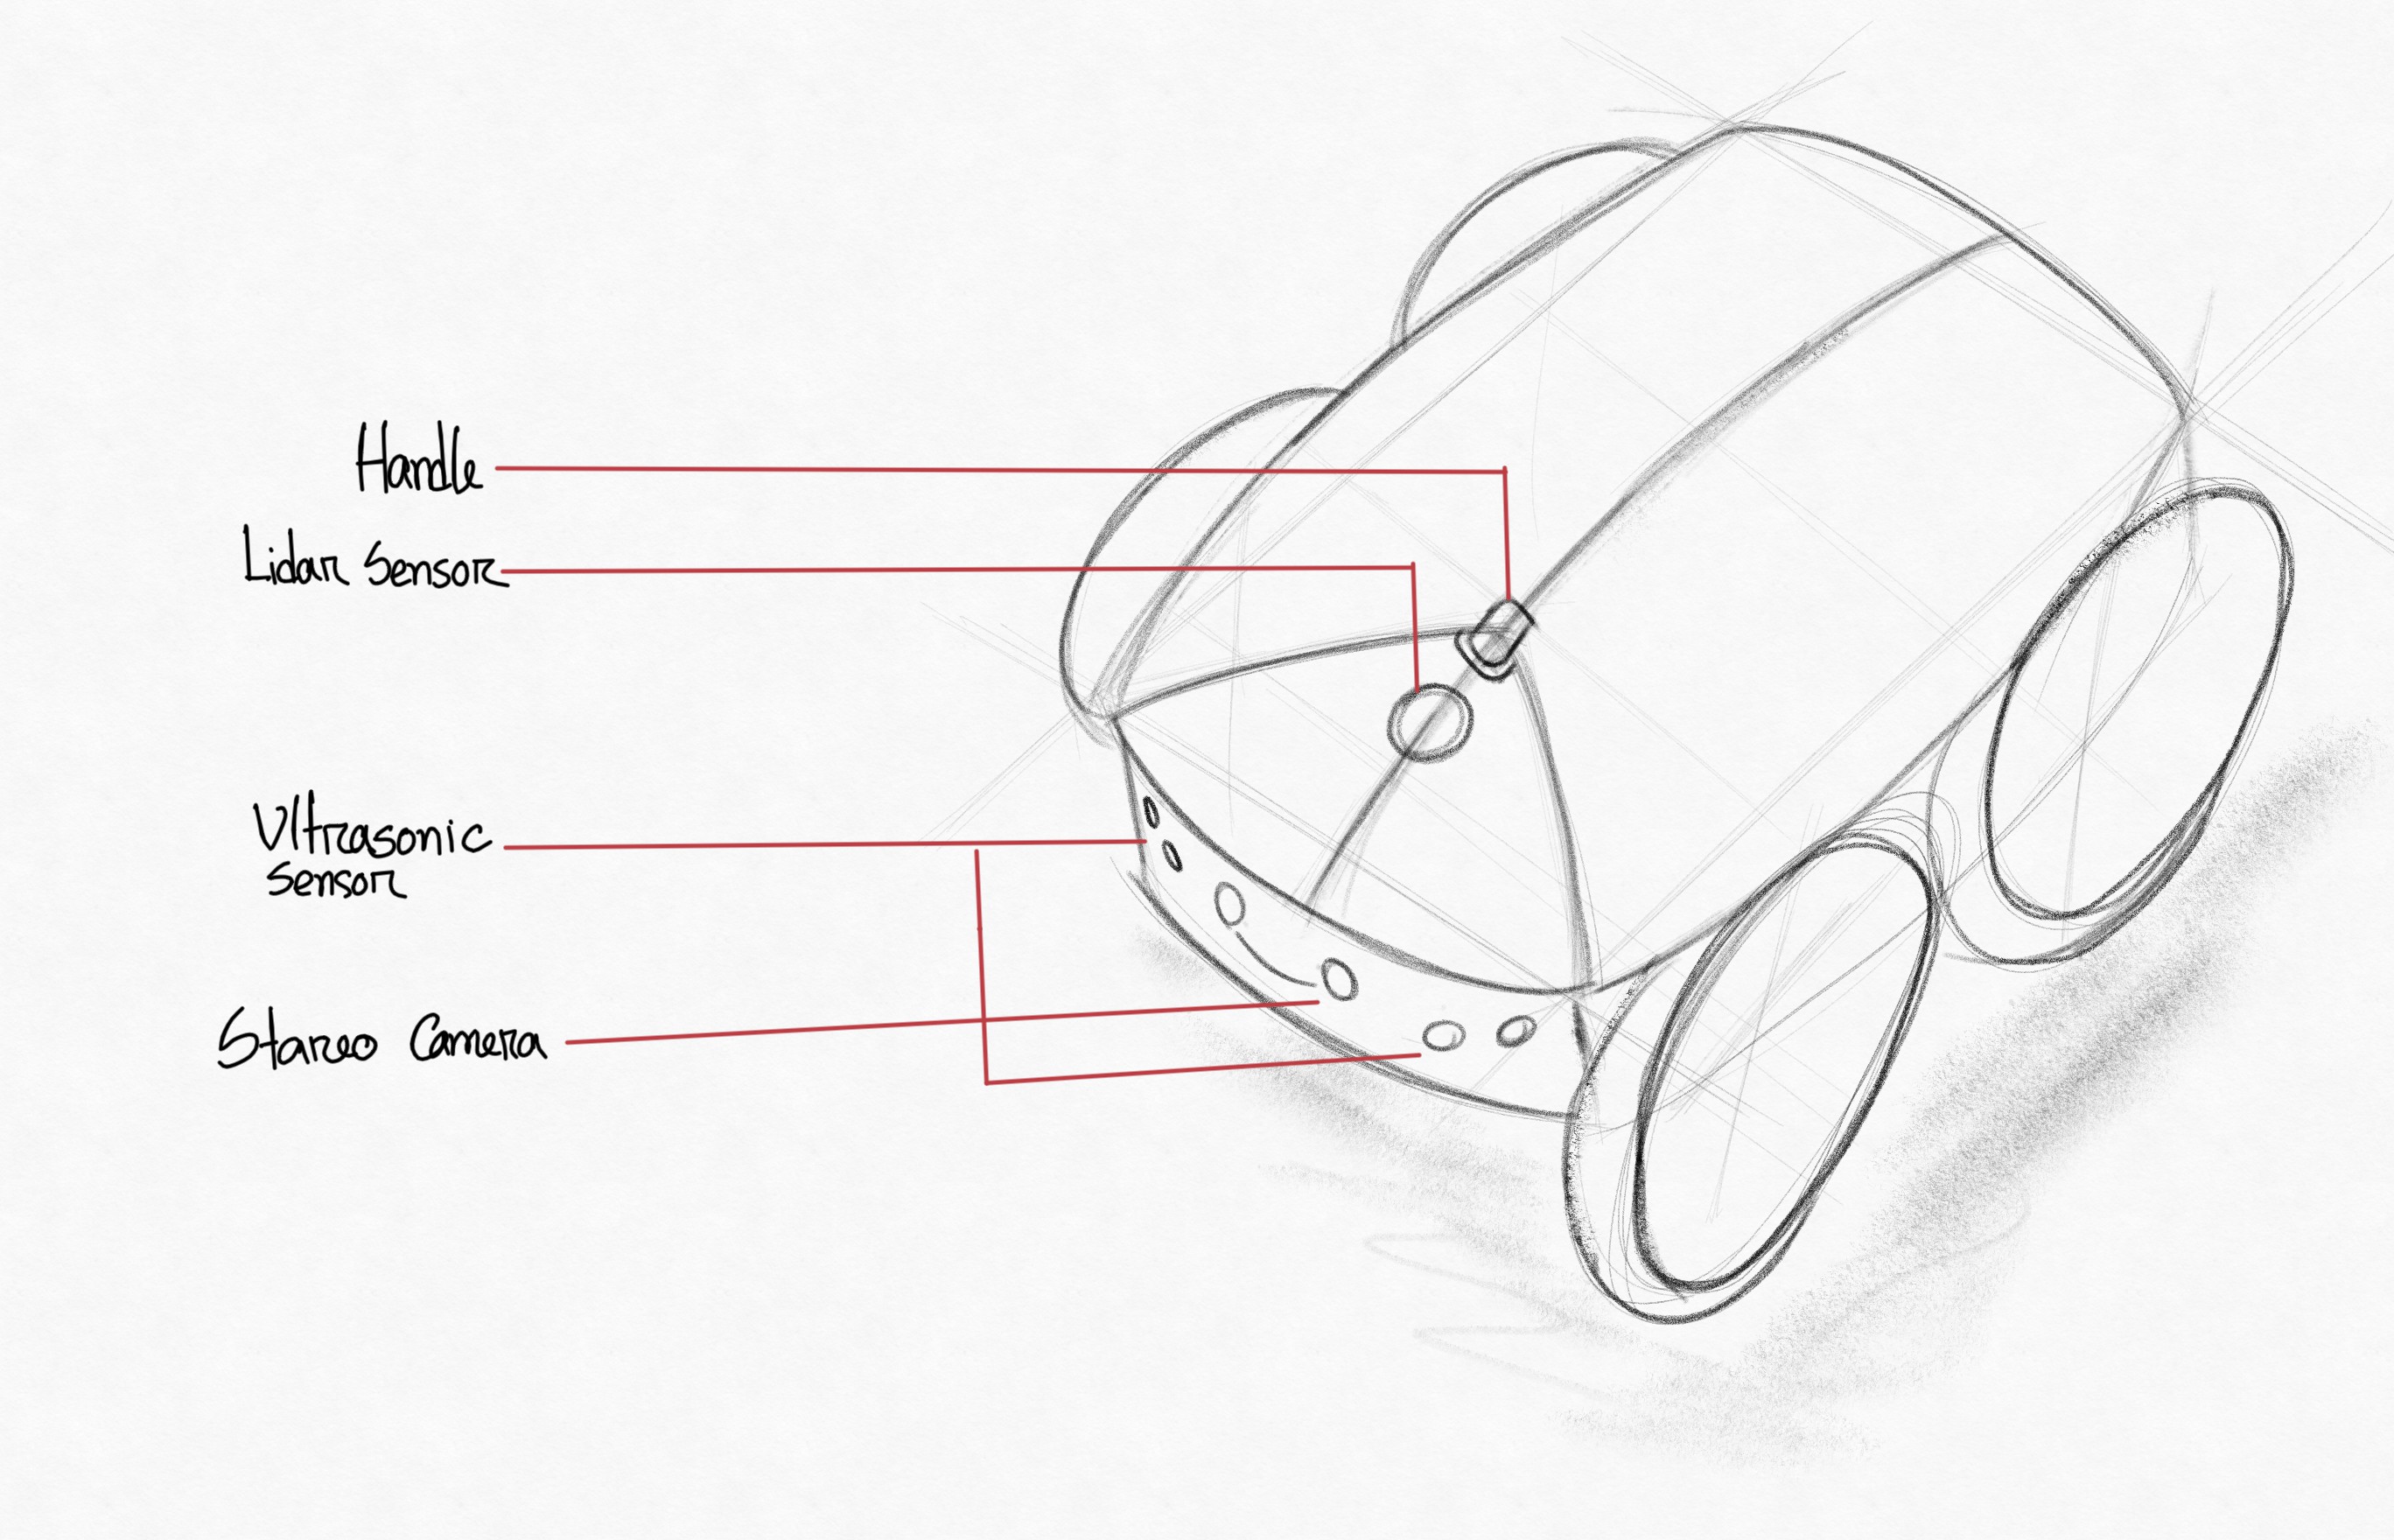 Handle
Lidar Sensor
Ultrasonic
Sensor
Stareo Camera